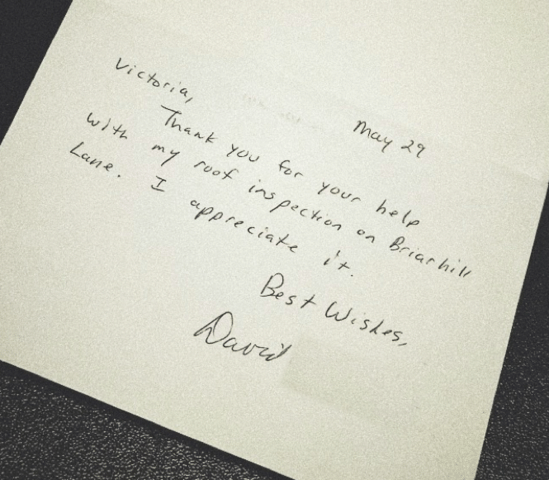 May 29
Victoria,
Thank you for your help
with my roof inspection on Briarhill
Lane. I appreciate it.
Best Wishes,
David